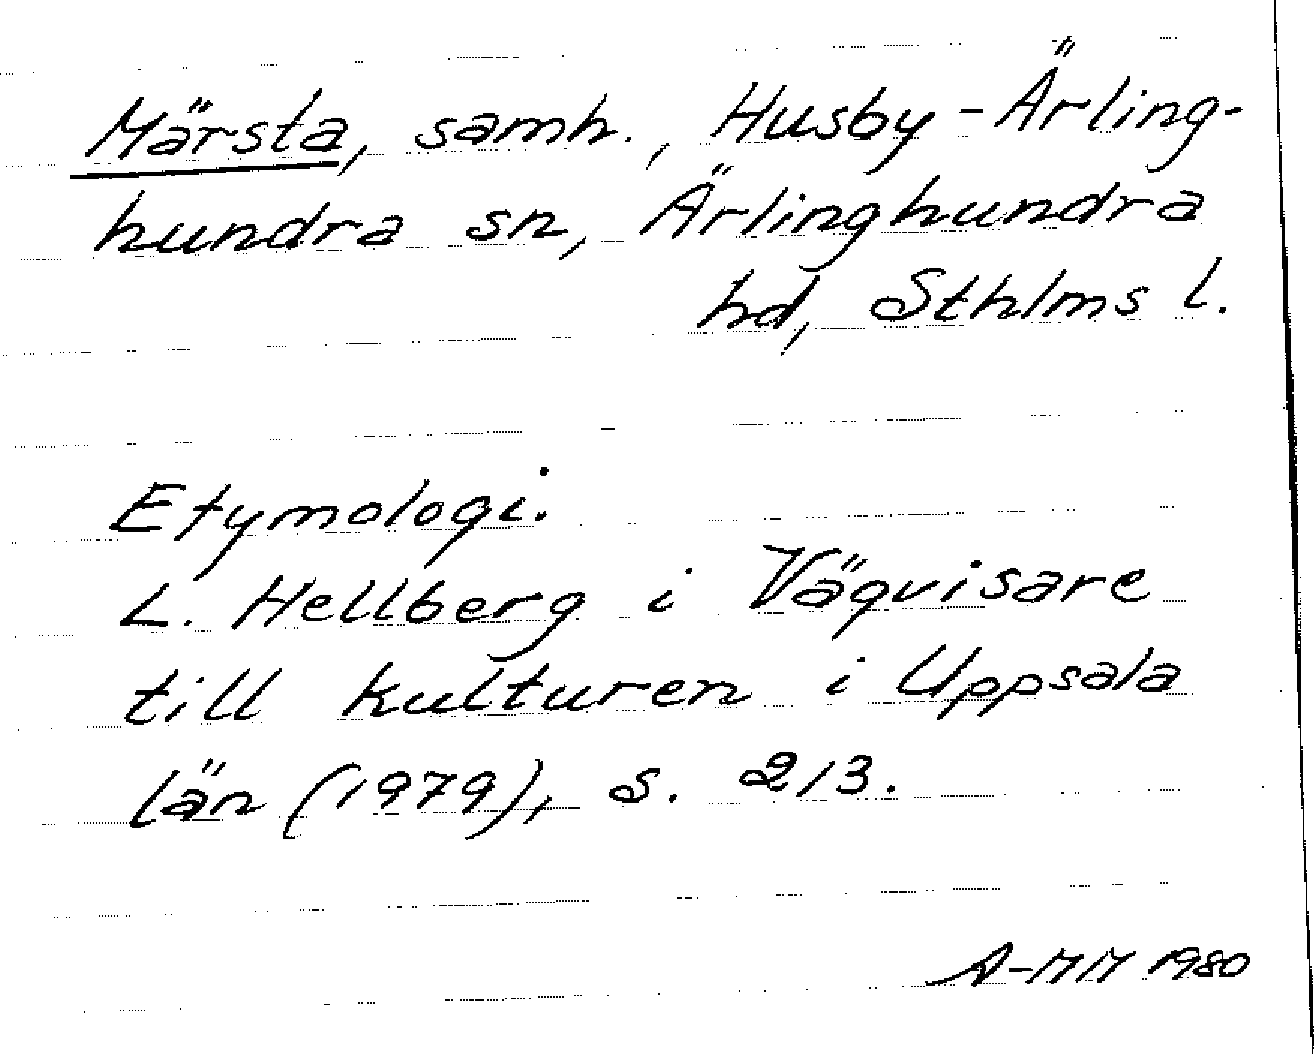 Märsta, samh., Husby-Ärling-
hundra sn, Ärlinghundra
hd, Sthlms l.
Etymologi.
L. Hellberg i Vägvisare
till kulturen i Uppsala
län (1979), s. 213.
A-MM 1980